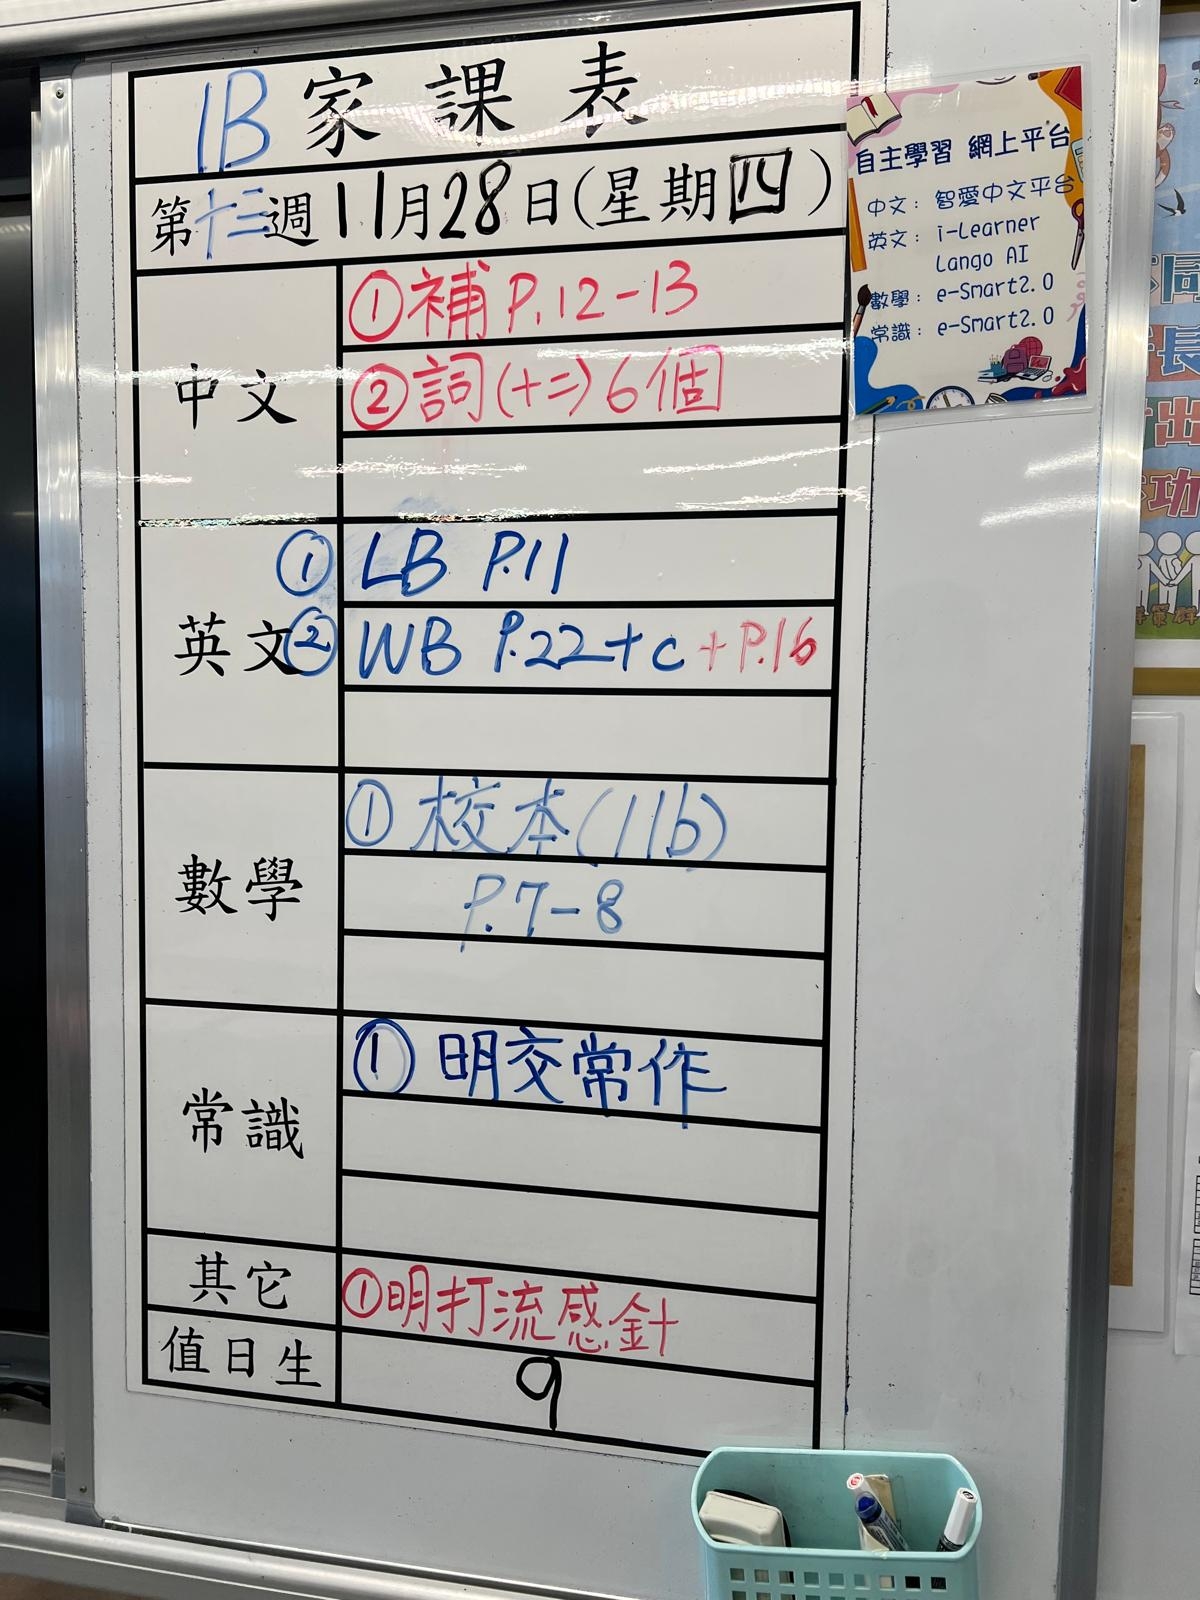 1B 家課表
第十三週 11月28日(星期四)
中文
①補 P.12-13
②詞(十二)6個
英文
① LB P.11
② WB P.22+c +P.16
數學
① 校本(11b)
P.7-8
常識
① 明交常作
其它
①明打流感針
值日生
9
自主學習 網上平台
中文：智愛中文平台
英文：i-Learner
Lango AI
數學：e-Smart2.0
常識：e-Smart2.0
同
長
出
功